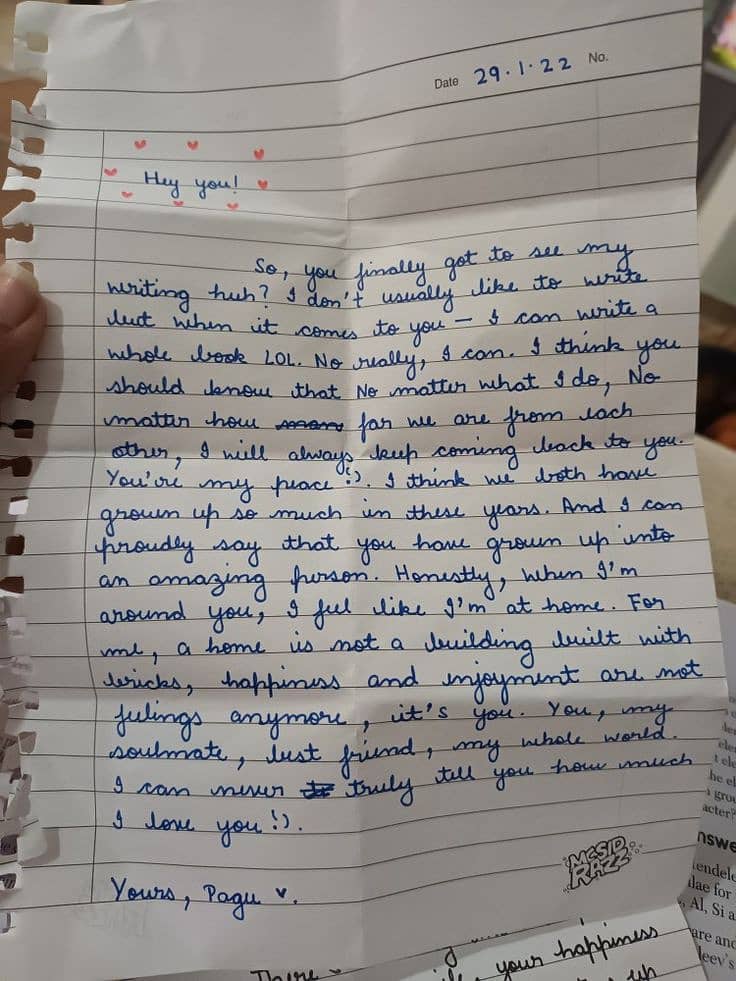 Date 29.1.22 No.
Hey you!
So, you finally got to see my
writing huh? I don't usually like to write
but when it comes to you – I can write a
whole book LOL. No really, I can. I think you
should know that No matter what I do, No
matter how many far we are from each
other, I will always keep coming back to you.
You're my peace :). I think we both have
grown up so much in these years. And I can
proudly say that you have grown up into
an amazing person. Honestly, when I'm
around you, I feel like I'm at home. For
me, a home is not a building built with
bricks, happiness and enjoyment are not
feelings anymore, it's you. You, my
soulmate, best friend, my whole world.
I can never truly tell you how much
I love you :).
Yours, Pagu
MCSID
RAZZ
There
your happiness
up
nswe
endele
ilae for
, Al, Si a
are and
leev's
he el
grou
acter?